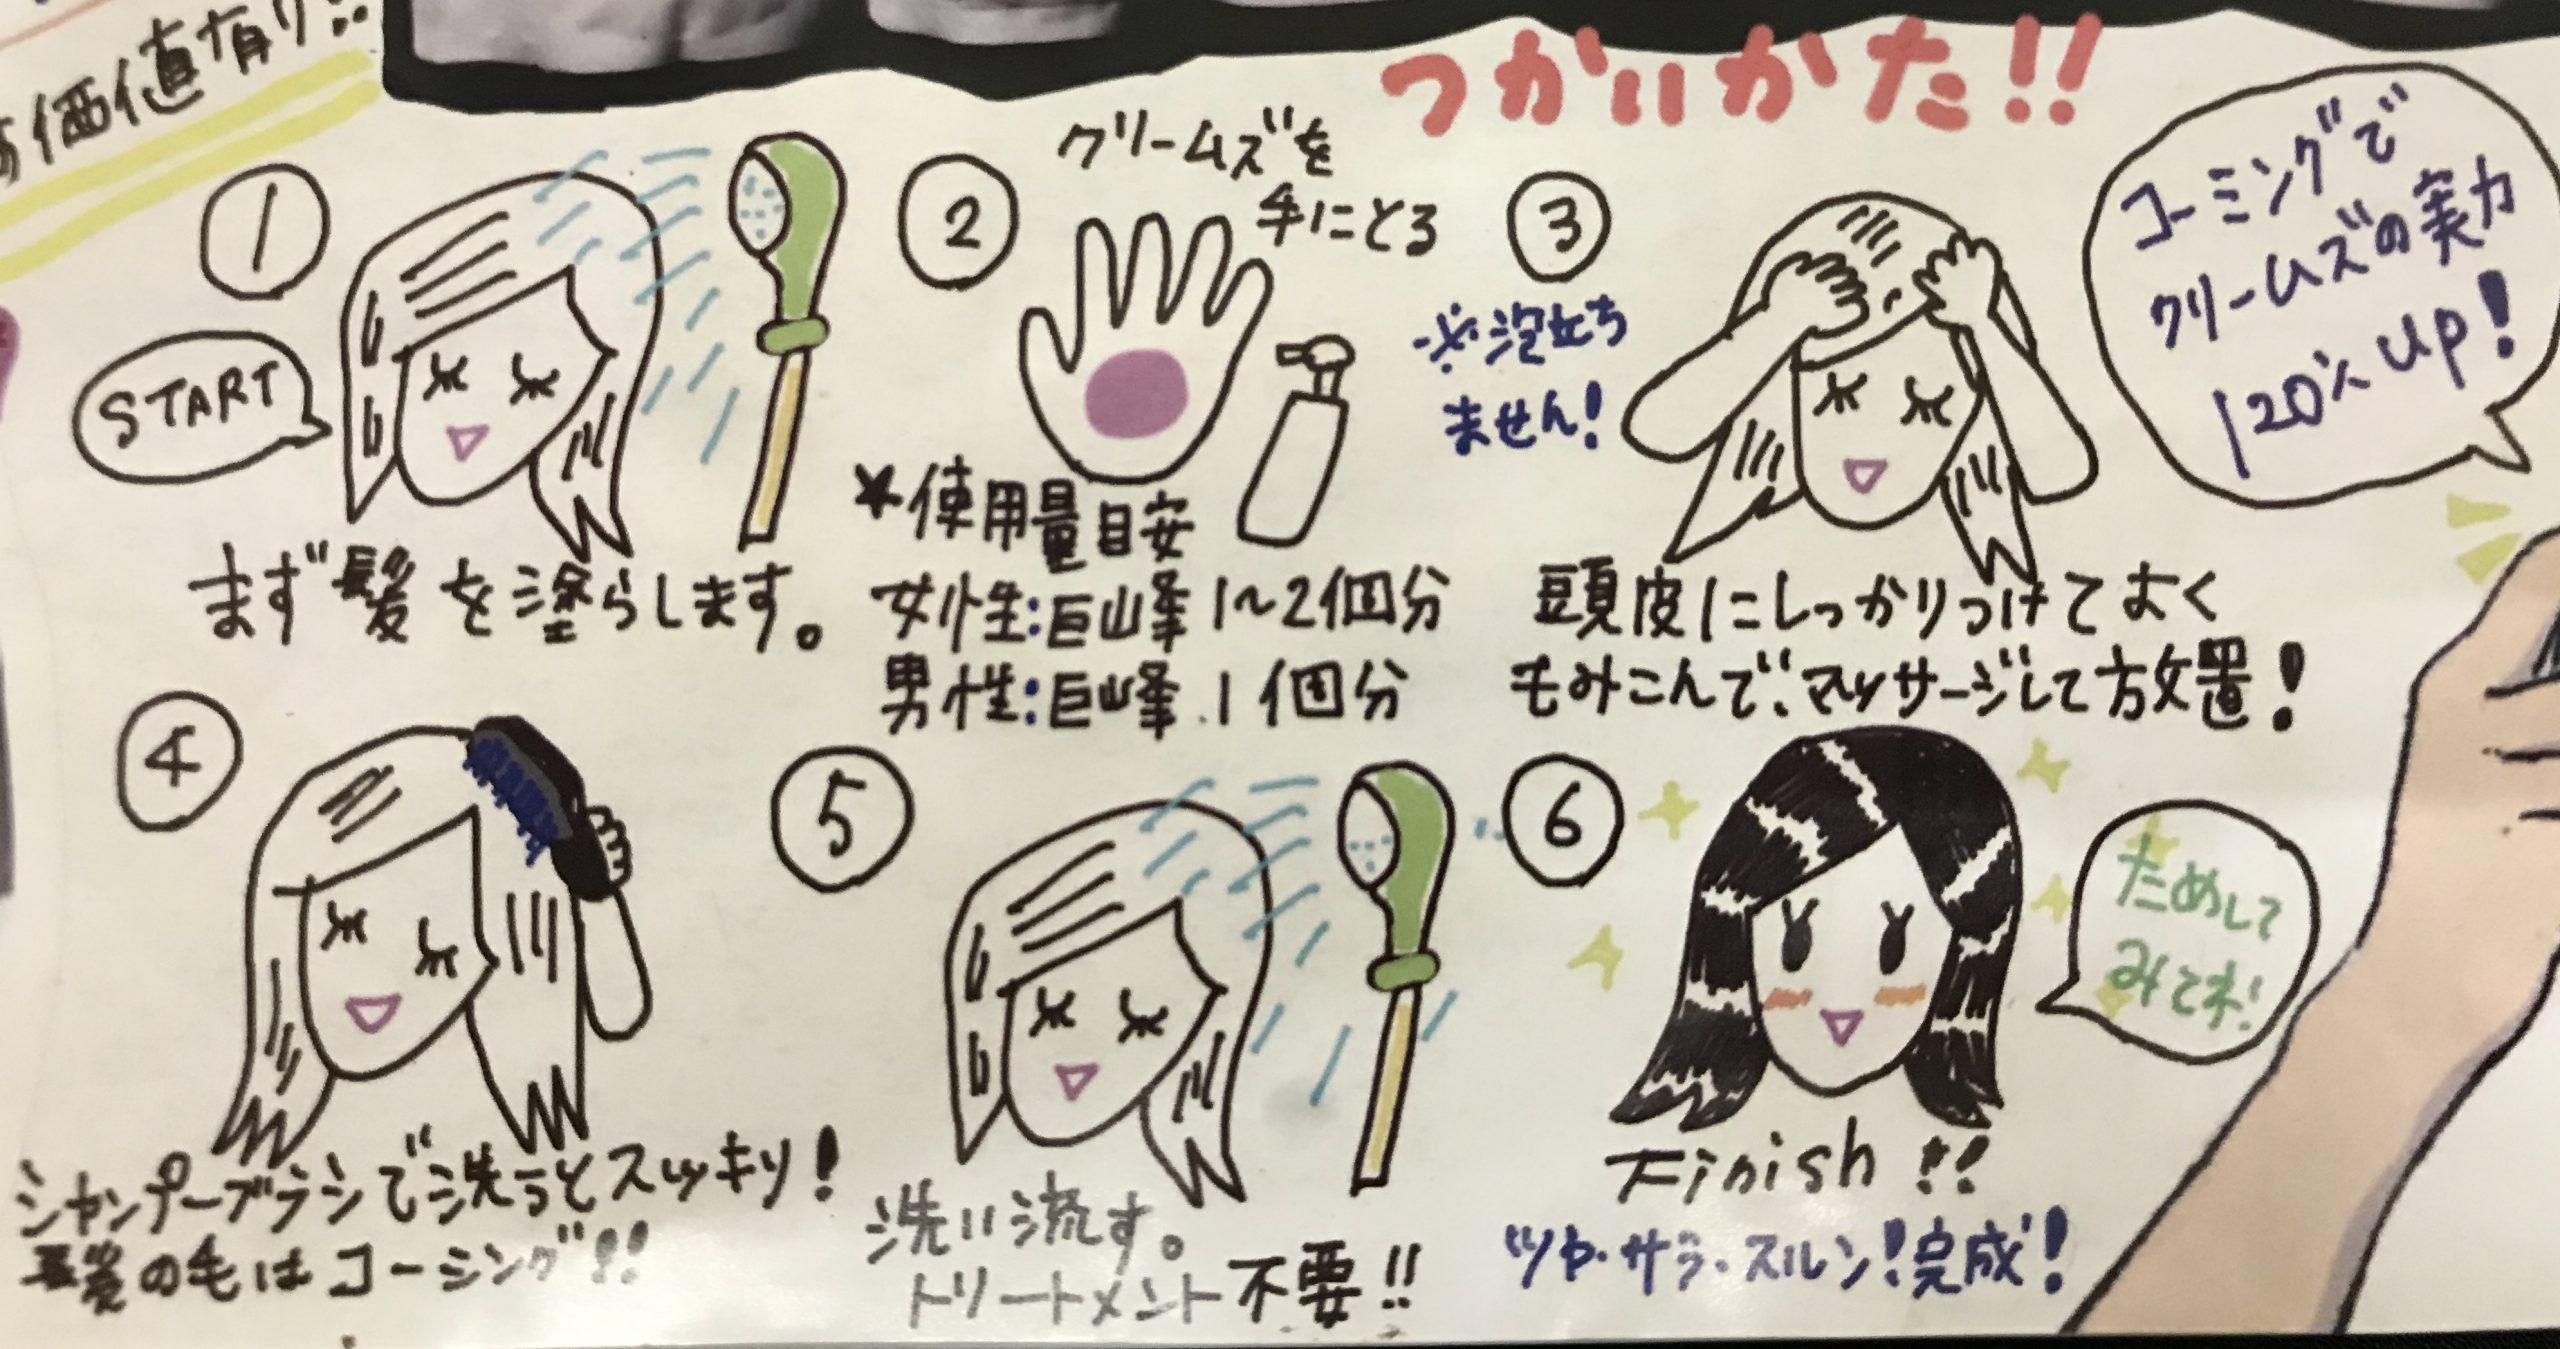 価値有り!!
つかいかた!!
①
START
まず髪を塗らします。
②
クリームズを
手にとる
★使用量目安
女性:巨峰1〜2個分
男性:巨峰1個分
③
※泡立ち
ません!
頭皮にしっかりつけておく
もみこんで、マッサージして放置!
コーミングで
クリームズの実力
120% UP!
④
シャンプーブラシで洗うとスッキリ!
髪の毛はコーミング!!
⑤
洗い流す。
トリートメント不要!!
⑥
ためして
みてネ!
Finish!!
ツヤ・サラ・スルン!完成!